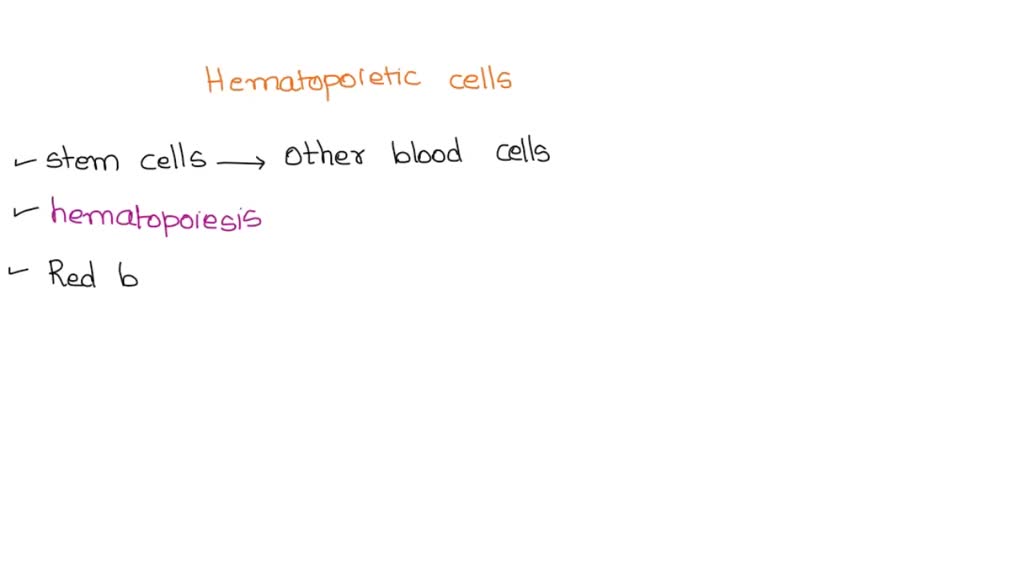 Hematopoietic cells
stem cells → Other blood cells
hematopoiesis
Red b